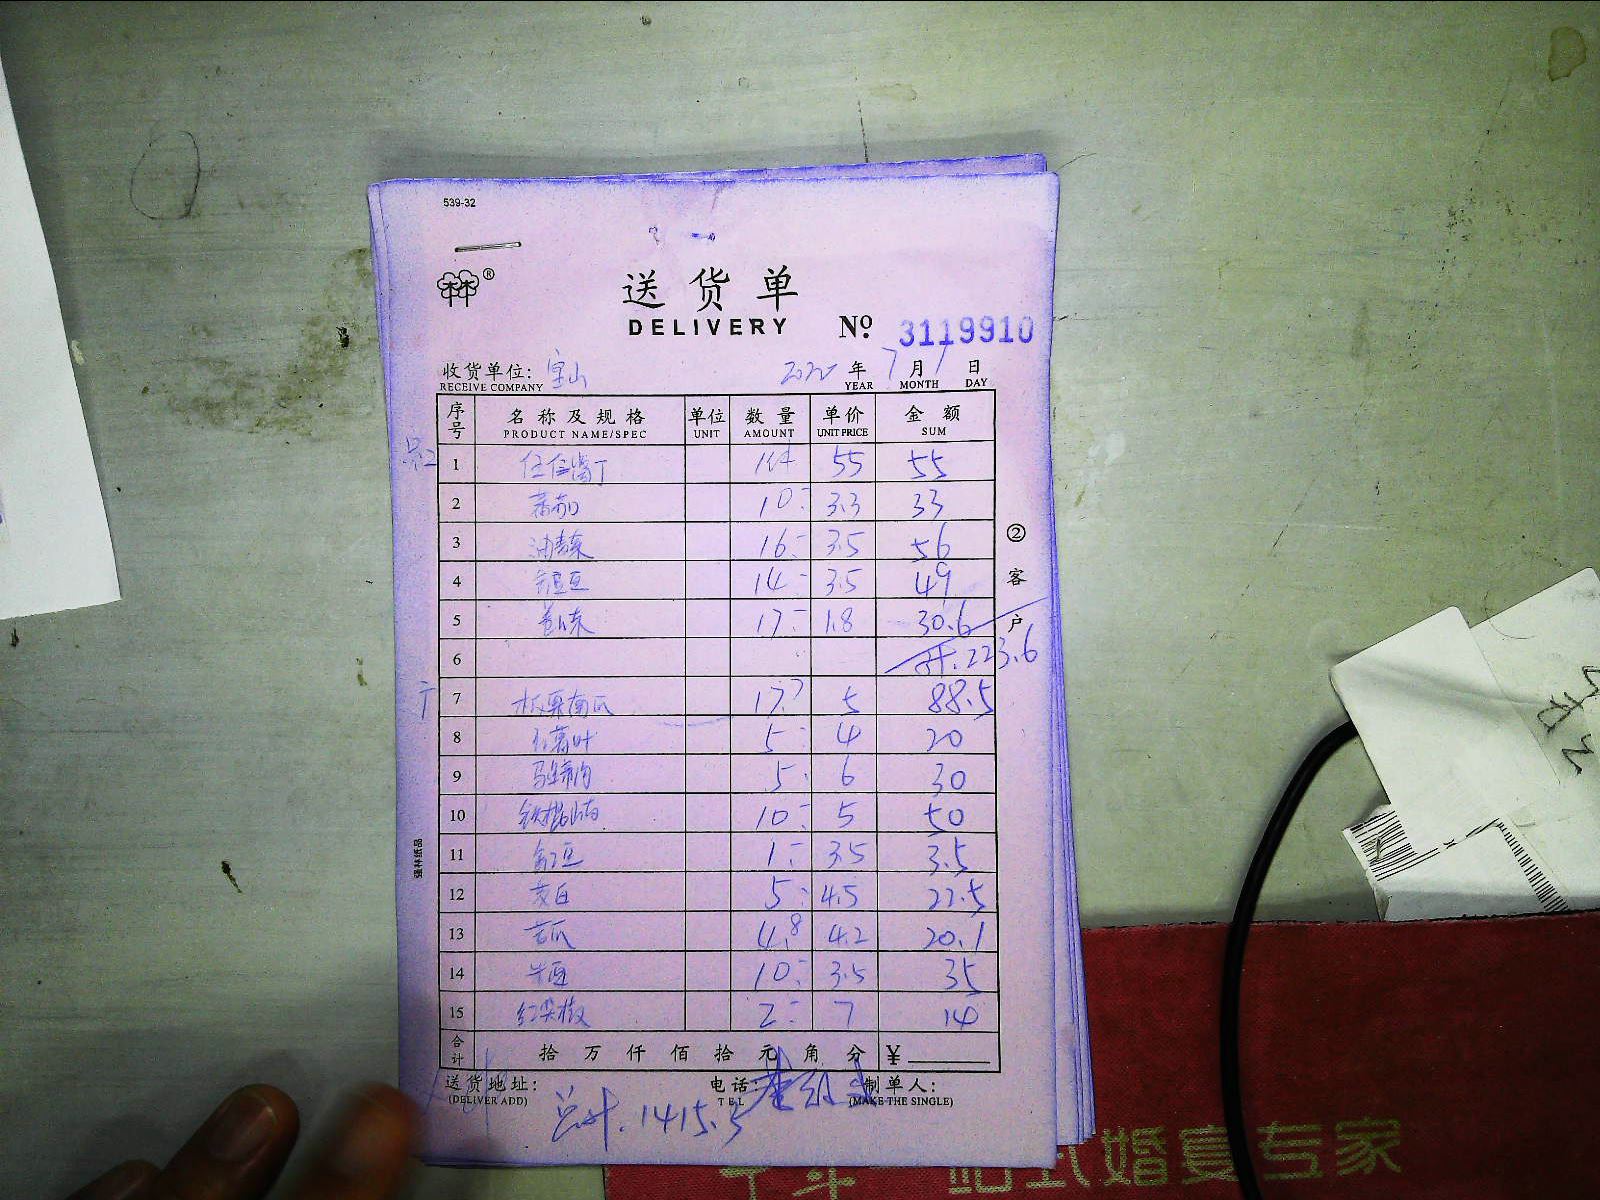 539-32
林®
送货单
DELIVERY № 3119910
收货单位: 宝山 2020年 7月 1日
RECEIVE COMPANY YEAR MONTH DAY
序号 名称及规格 单位 数量 单价 金额
PRODUCT NAME/SPEC UNIT AMOUNT UNIT PRICE SUM
1 55 55
2 蕃茄 10 3.3 33
3 油麦菜 16 3.5 56
4 14 3.5 49
5 17 1.8 30.6
6 计.223.6
7 板栗南瓜 17.7 5 88.5
8 红薯叶 5 4 20
9 5 6 30
10 铁棍山药 10 5 50
11 1 3.5 3.5
12 茭白 5 4.5 22.5
13 4.8 4.2 20.1
14 10 3.5 35
15 红尖椒 2 7 14
合计 拾万仟佰拾元角分 ¥
送货地址: 电话: 制单人:
(DELIVER ADD) TEL (MAKE THE SINGLE)
总计.1415.5
②客户
强林纸品
站式婚宴专家